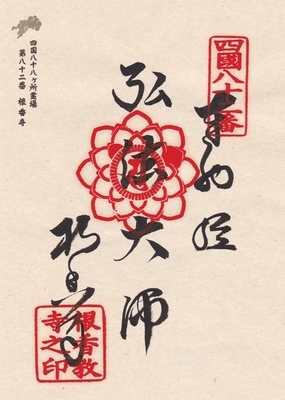 四國八十二番
奉納経
弘法大師
根香寺
根香教
寺之印
四国八十八ヶ所霊場
第八十二番 根香寺